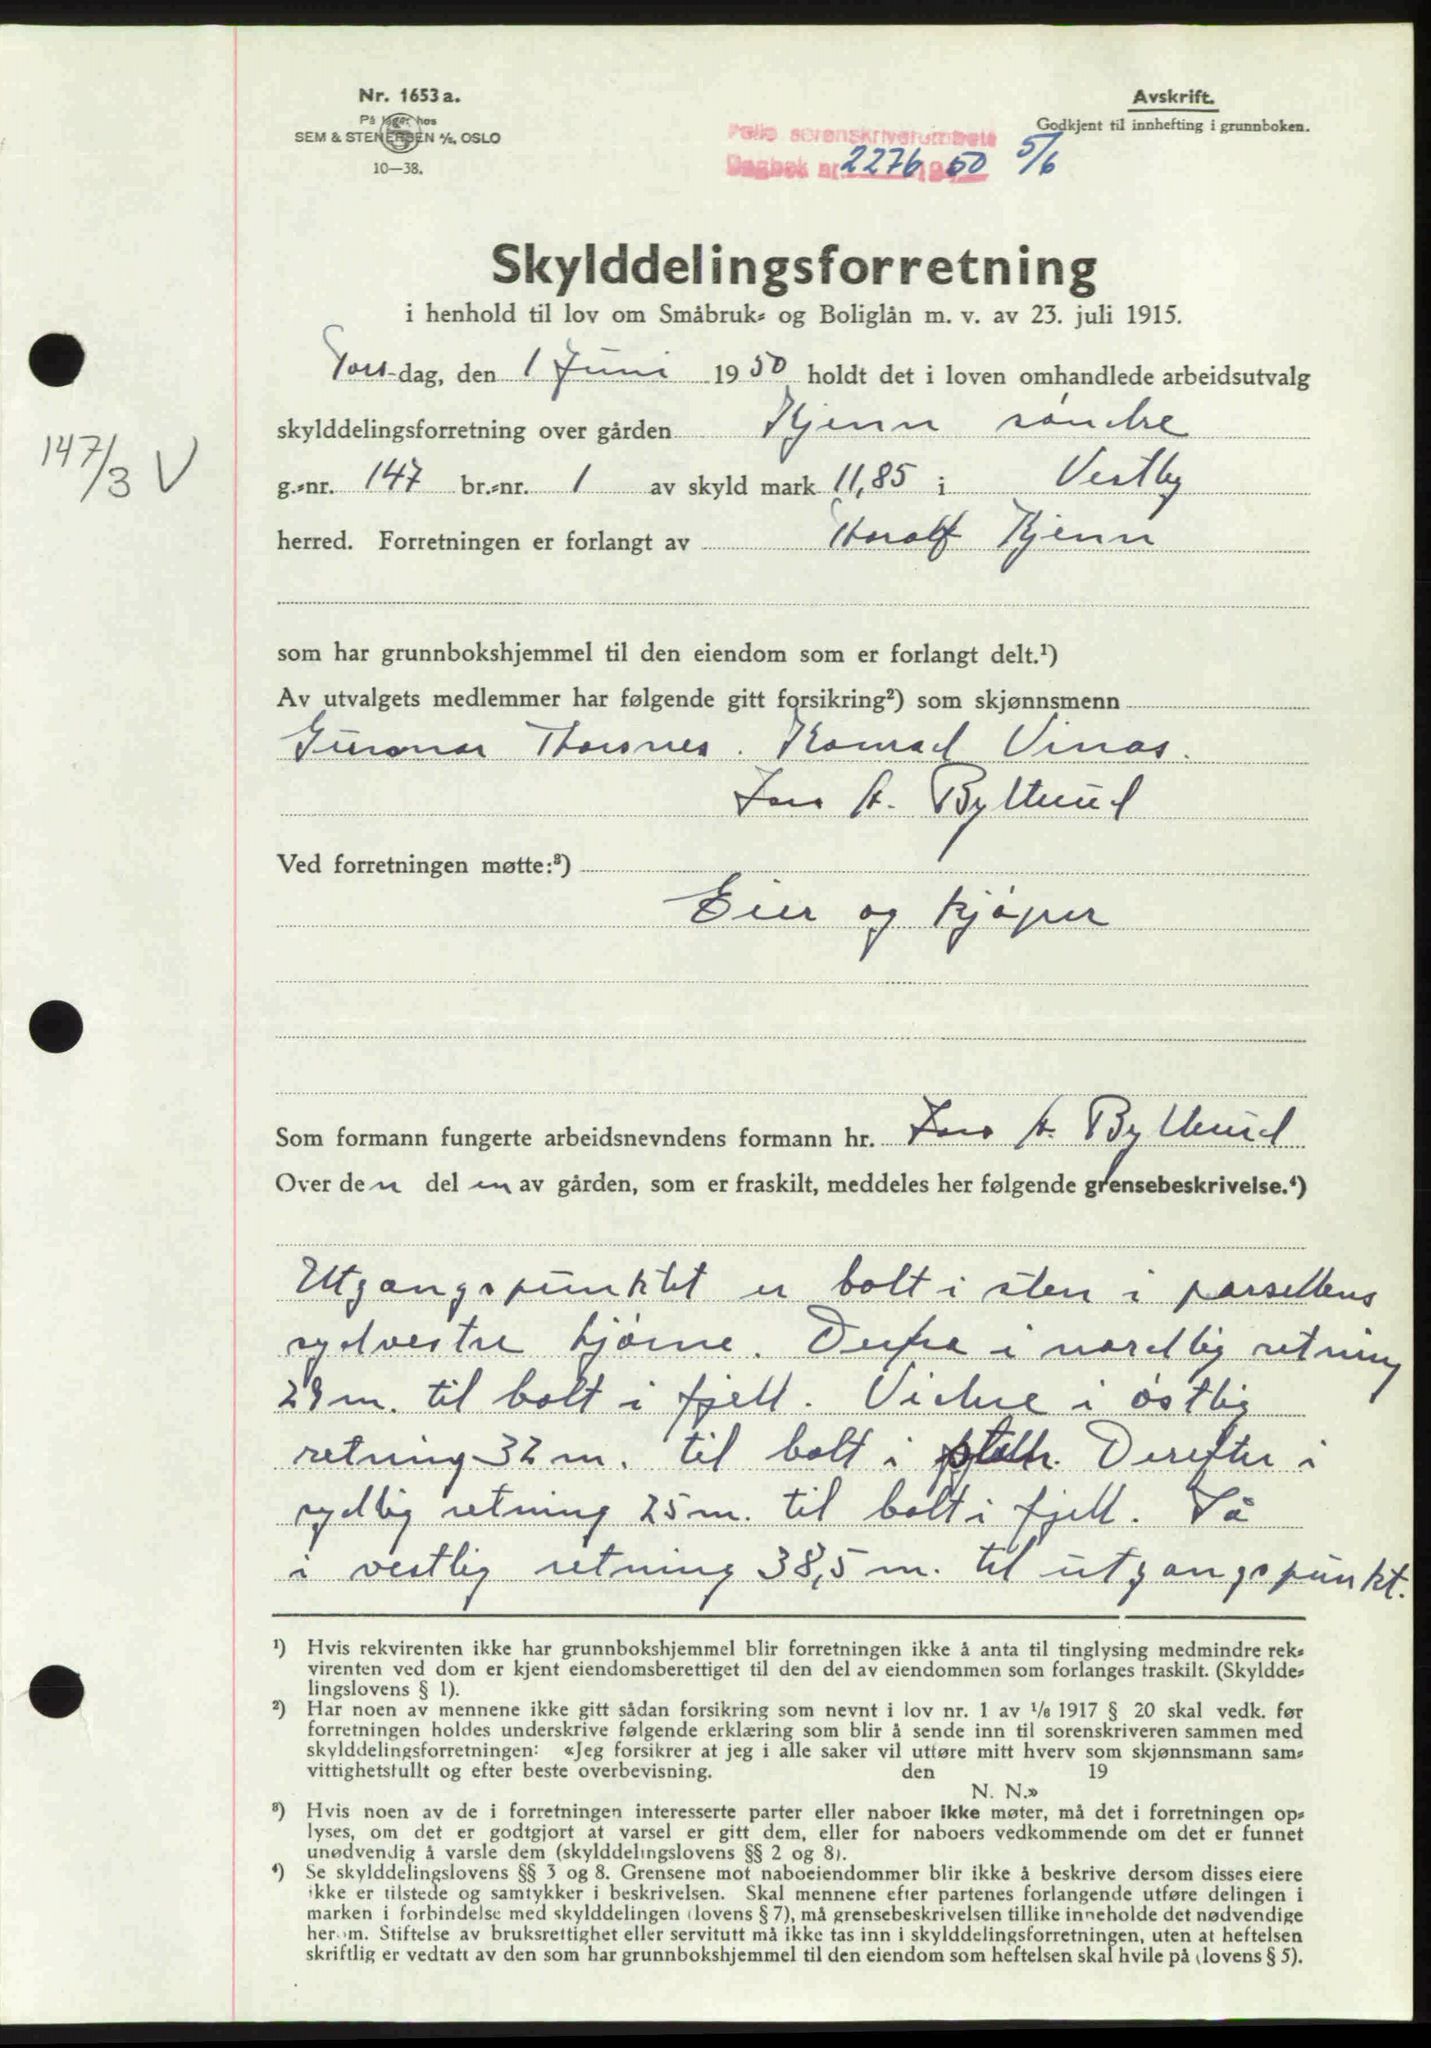 Nr. 1653 a.
På lager hos
SEM & STENERSEN A/S, OSLO
10—38.
Avskrift.
Godkjent til innhefting i grunnboken.
Follo sorenskriverembete
Dagbok nr. 2276 19 50 5/6
Skylddelingsforretning
i henhold til lov om Småbruk- og Boliglån m. v. av 23. juli 1915.
Tors-dag, den 1 Juni 1950 holdt det i loven omhandlede arbeidsutvalg
skylddelingsforretning over gården Kjenn söndre
147/3 V
g.-nr. 147 br.-nr. 1 av skyld mark 11,85 i Vestby
herred. Forretningen er forlangt av Thorolf Kjenn
som har grunnbokshjemmel til den eiendom som er forlangt delt.¹)
Av utvalgets medlemmer har følgende gitt forsikring²) som skjønnsmenn
Gunnar Thorsnes. Konrad Vinas.
A. Bylterud
Ved forretningen møtte:³)
Eier og kjöper
Som formann fungerte arbeidsnevndens formann hr. A. Bylterud
Over den delen av gården, som er fraskilt, meddeles her følgende grensebeskrivelse.⁴)
Utgangspunktet er bolt i sten i parsellens
sydvestre hjörne. Derfra i nordlig retning
29 m. til bolt i fjell. Videre i östlig
retning 32 m. til bolt i Derefter i
sydlig retning 25 m. til bolt i fjell. Så
i vestlig retning 38,5 m. til utgangspunkt.
¹) Hvis rekvirenten ikke har grunnbokshjemmel blir forretningen ikke å anta til tinglysing medmindre rek-
virenten ved dom er kjent eiendomsberettiget til den del av eiendommen som forlanges fraskilt. (Skyldde-
lingslovens § 1).
²) Har noen av mennene ikke gitt sådan forsikring som nevnt i lov nr. 1 av 1/6 1917 § 20 skal vedk. før
forretningen holdes underskrive følgende erklæring som blir å sende inn til sorenskriveren sammen med
skylddelingsforretningen: «Jeg forsikrer at jeg i alle saker vil utføre mitt hverv som skjønnsmann sam-
vittighetsfullt og efter beste overbevisning. den 19
N. N.»
³) Hvis noen av de i forretningen interesserte parter eller naboer ikke møter, må det i forretningen op-
lyses, om det er godtgjort at varsel er gitt dem, eller for naboers vedkommende om det er funnet
unødvendig å varsle dem (skylddelingslovens §§ 2 og 8).
⁴) Se skylddelingslovens §§ 3 og 8. Grensene mot naboeiendommer blir ikke å beskrive dersom disses eiere
ikke er tilstede og samtykker i beskrivelsen. Skal mennene efter partenes forlangende utføre delingen i
marken i forbindelse med skylddelingen (lovens § 7), må grensebeskrivelsen tillike inneholde det nødvendige
herom. Stiftelse av bruksrettighet eller servitutt må ikke tas inn i skylddelingsforretningen, uten at heftelsen
skriftlig er vedtatt av den som har grunnbokshjemmel til den eiendom som heftelsen skal hvile på (lovens § 5).